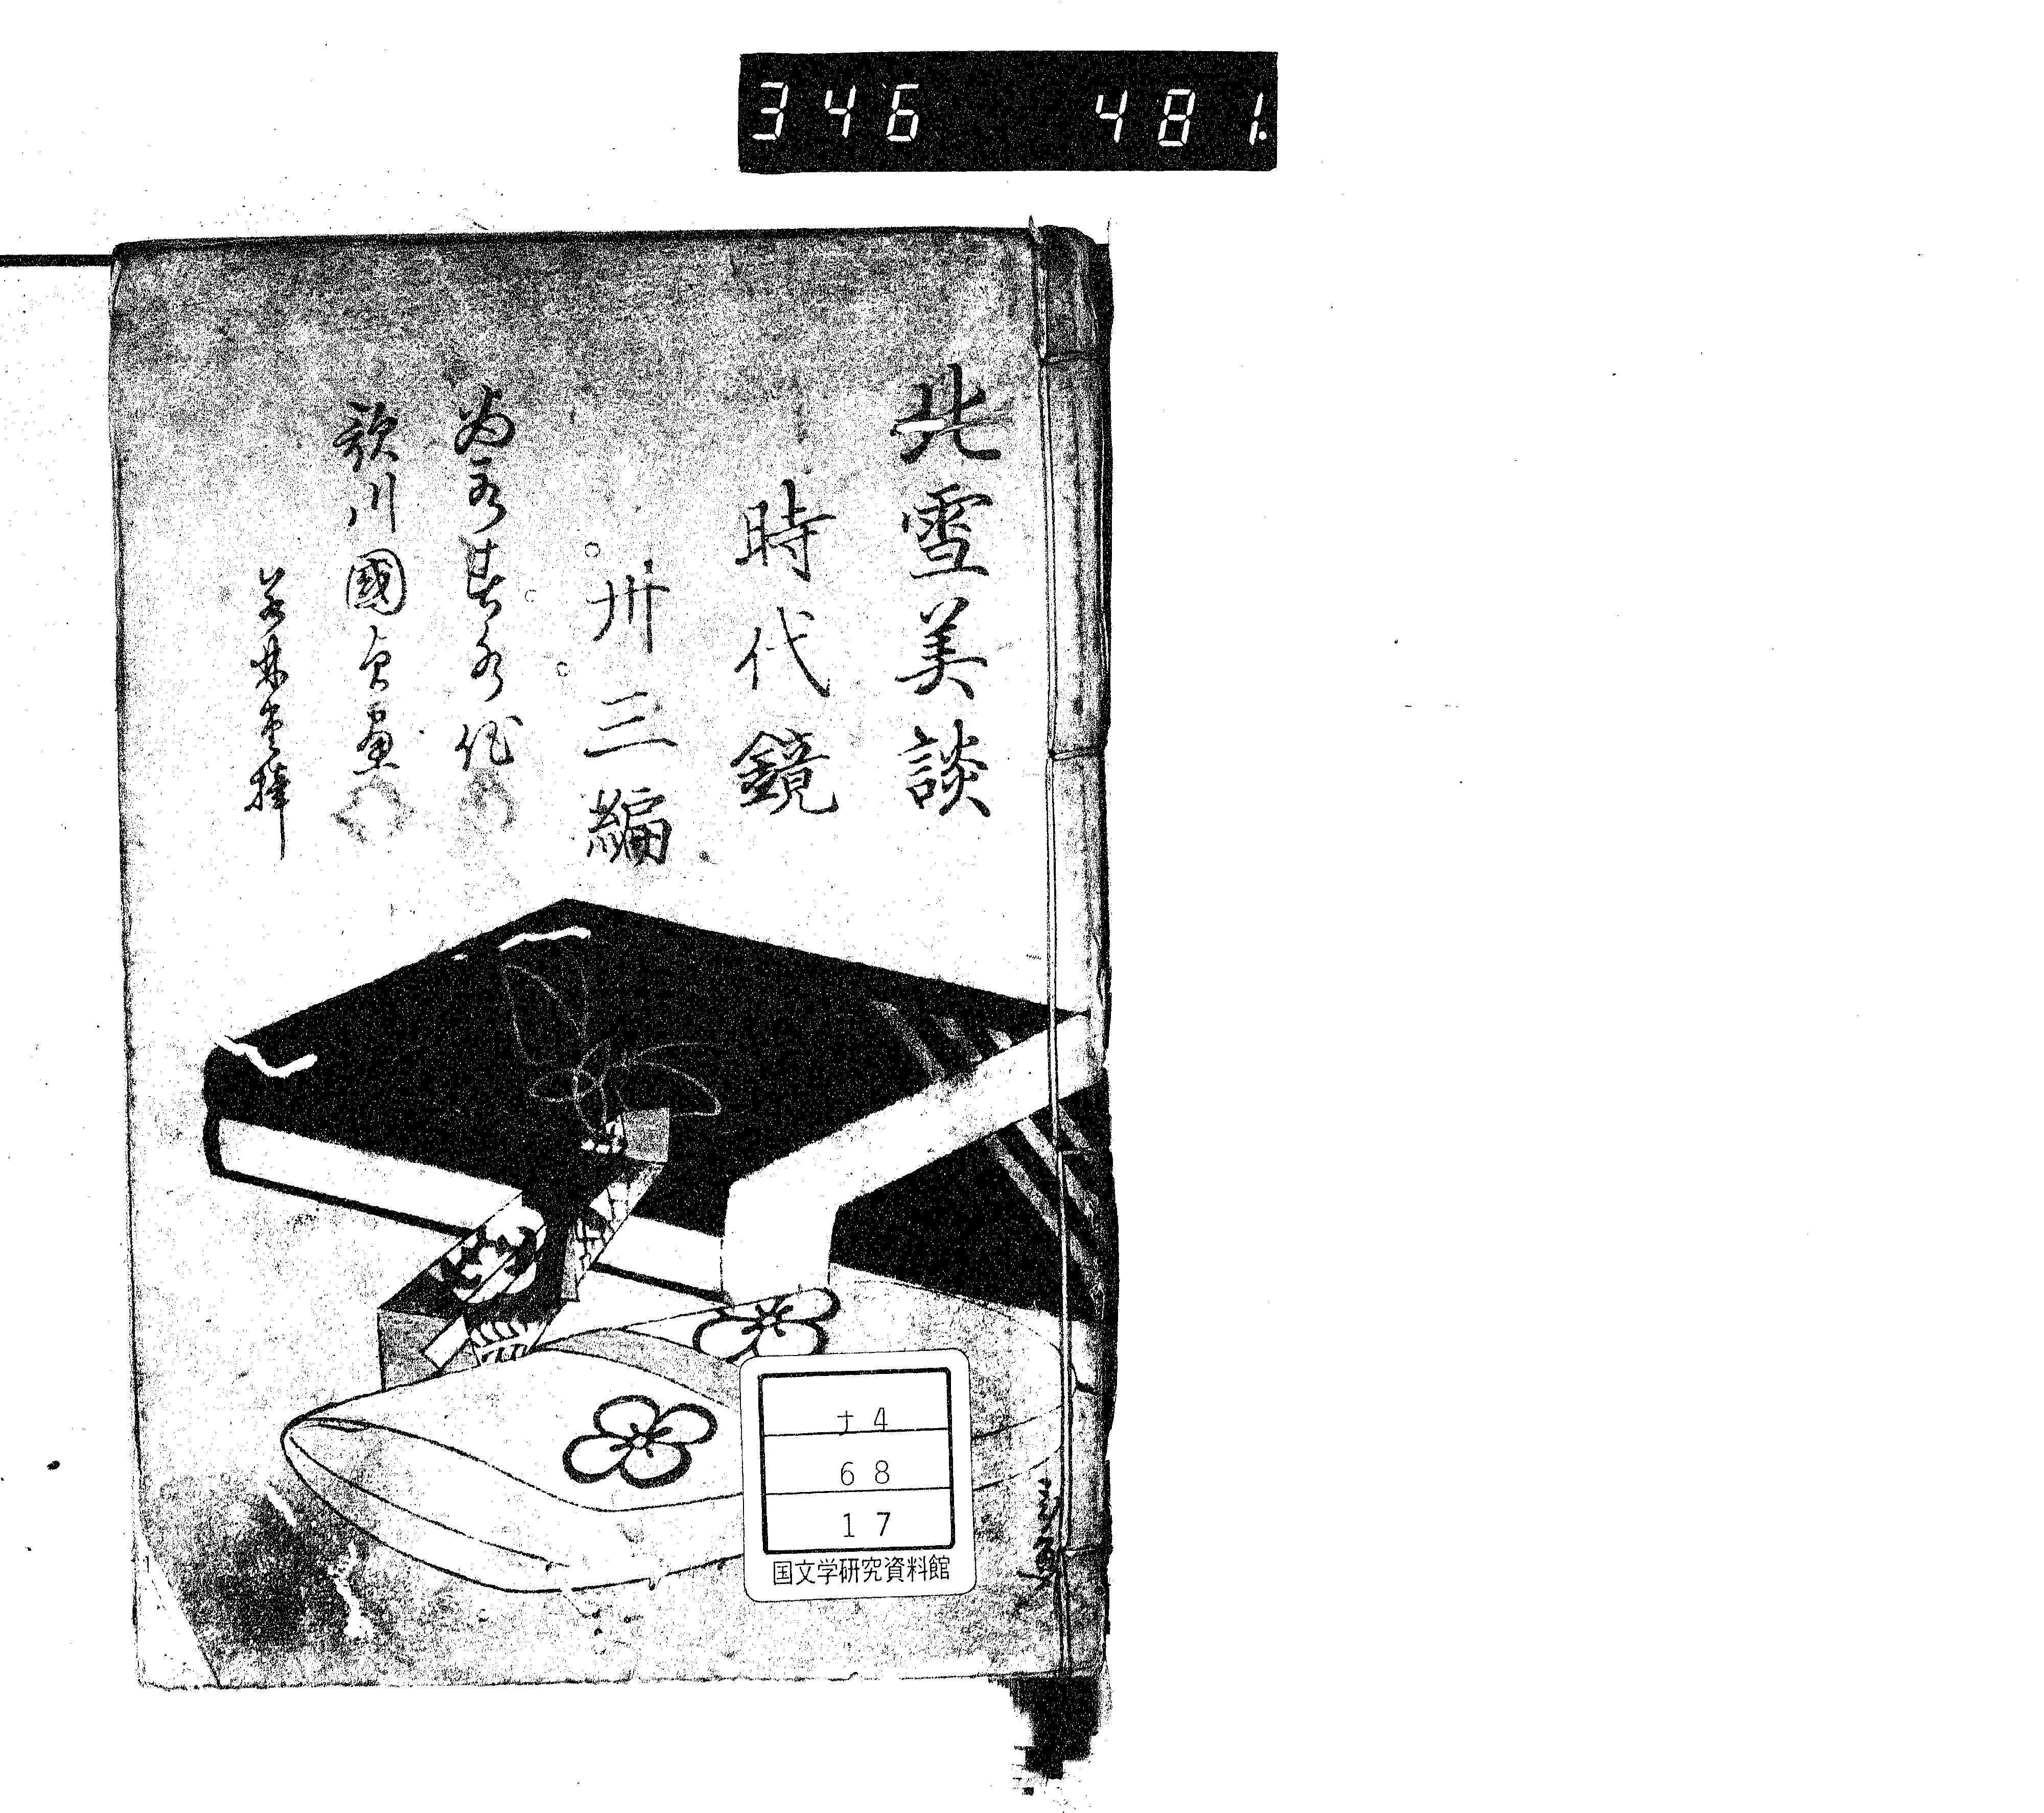 346 481.
北雪美談
時代鏡
卅三編
為永春水作
歌川國貞画
若林堂梓
ナ4
68
17
国文学研究資料館